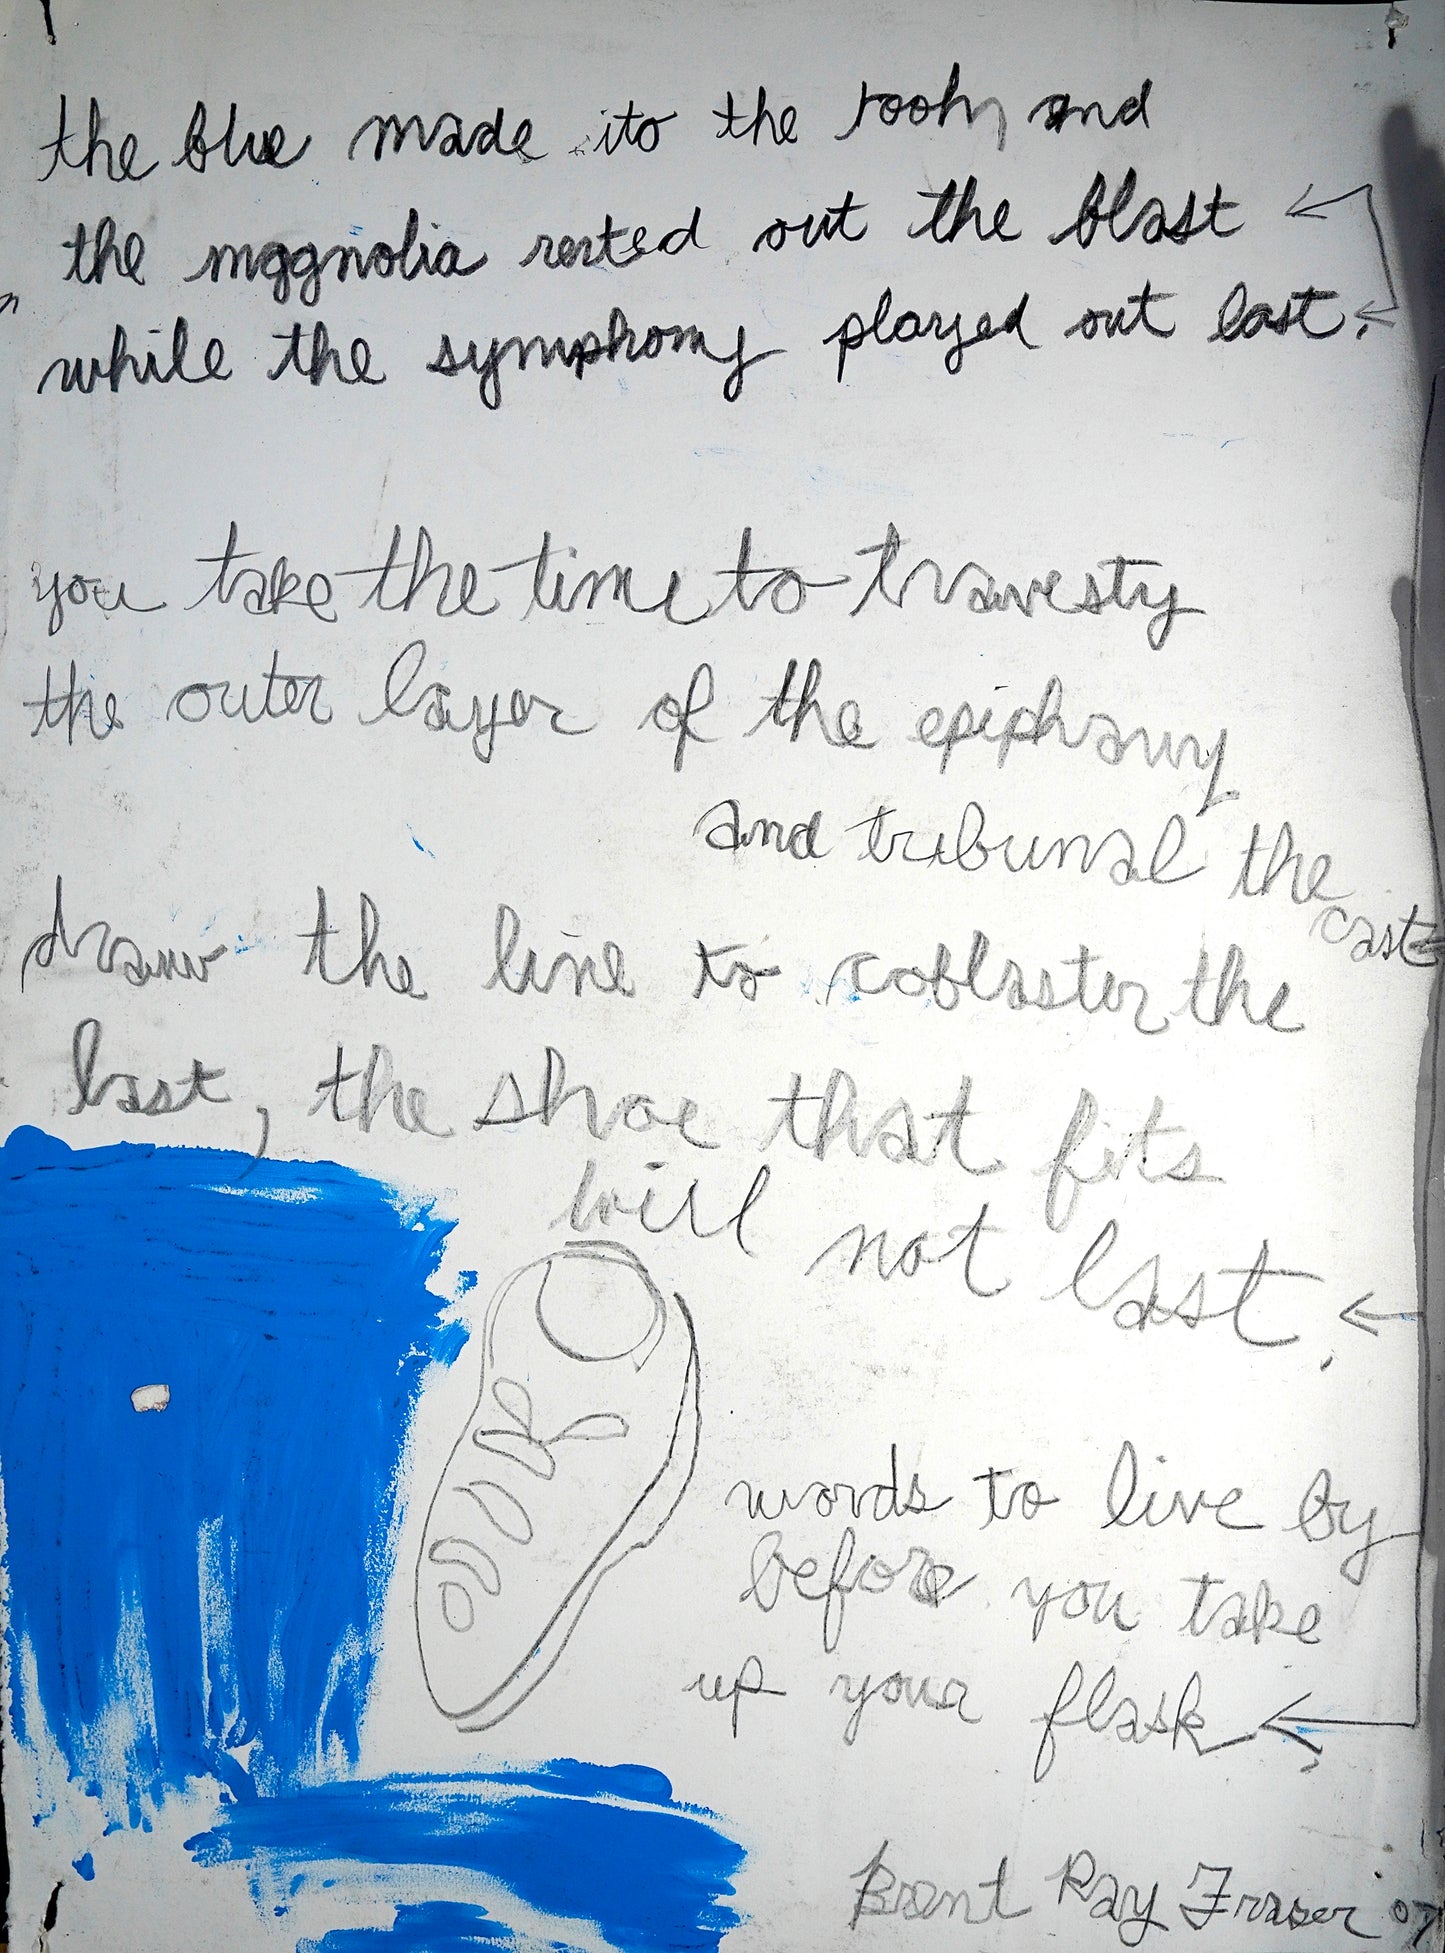 the blue made ito the room and
the magnolia rested out the blast
while the symphony played out last.
you take the time to travesty
the outer layer of the epiphany
and tribunal the
cast
draw the line to coblaster the
last, the shoe that fits
will not last.
words to live by
before you take
up your flask.
Brent Ray Fraser 07